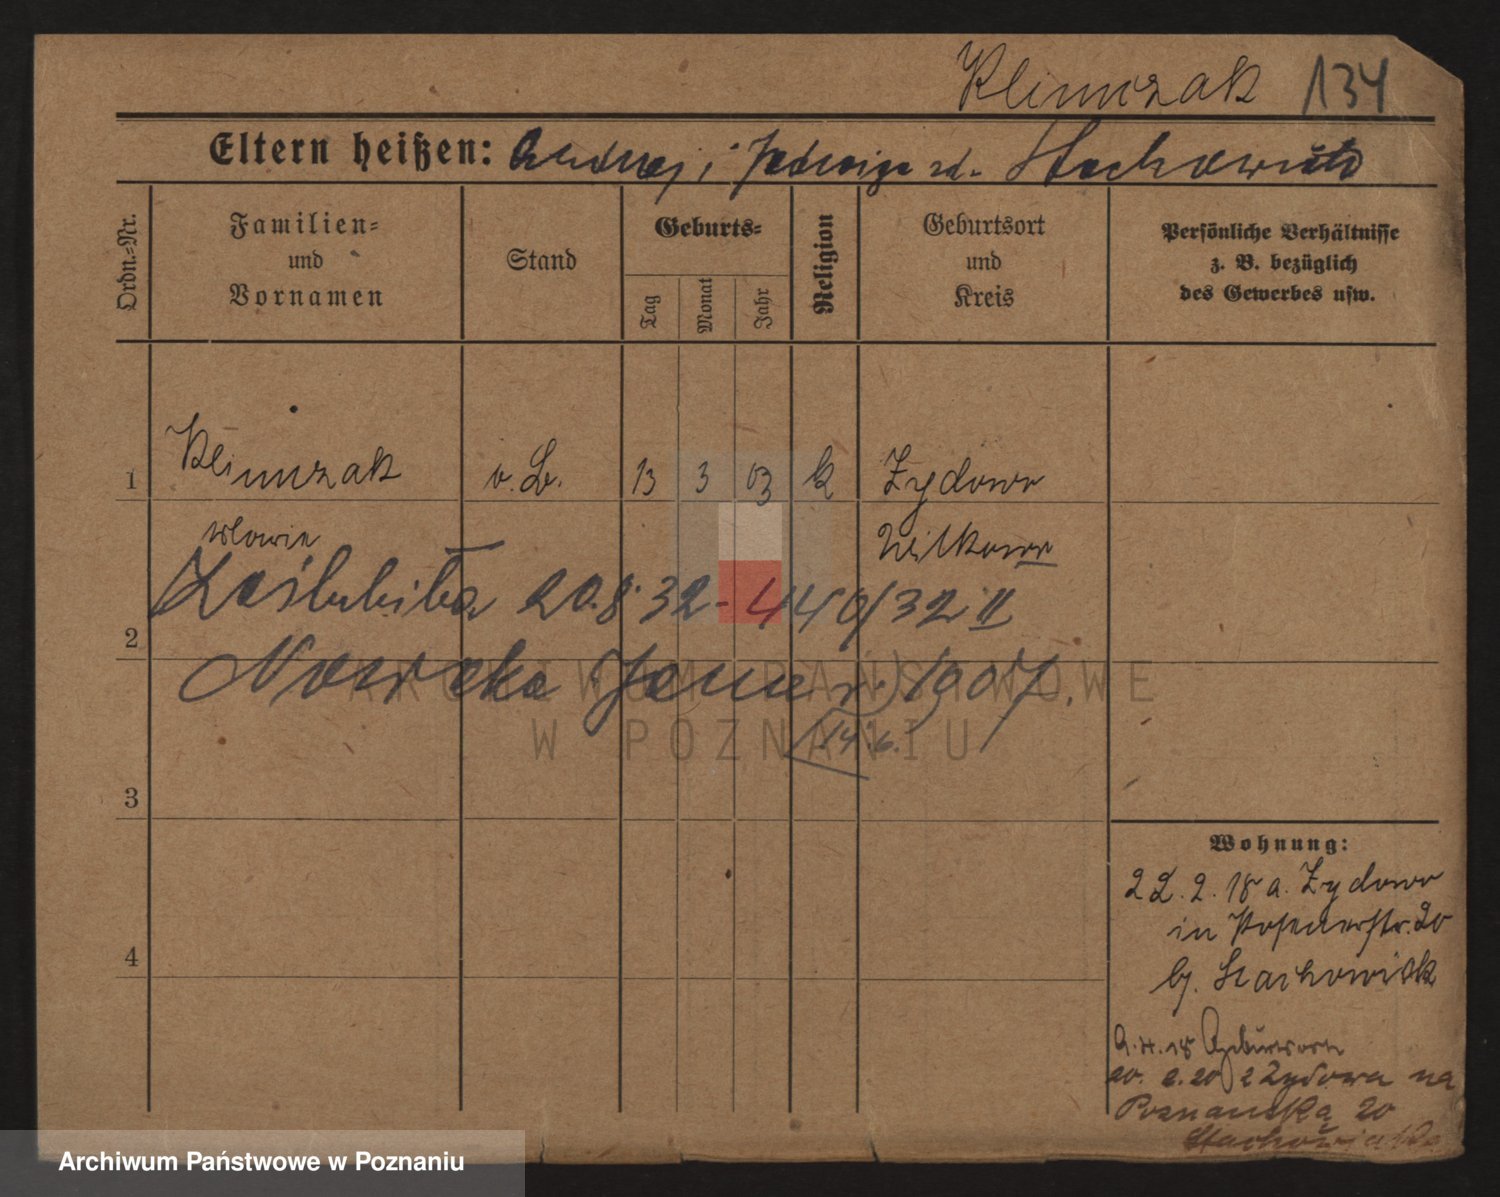 Klimczak 134
Eltern heißen: Andrzej i Jadwiga zd. Stachowiak
Ordn.-Nr.
Familien-
und
Vornamen
Stand
Geburts-
Tag
Monat
Jahr
Religion
Geburtsort
und
Kreis
Persönliche Verhältnisse
z. B. bezüglich
des Gewerbes usw.
1 Klimczak v. L. 13 3 03 k Zydowo
Witkowo
Zaślubiła 20.8.32 - 440/32 II
2
Nowicka Janina 1907.
14.6.
3
Wohnung:
22.2.18 a. Zydowo
in Posenerstr. 20
b/. Stachowiak
4
20. 2. 20 z Zydowa na
Poznańska 20
Stachowiaka
ARCHIWUM PAŃSTWOWE
W POZNANIU
Archiwum Państwowe w Poznaniu